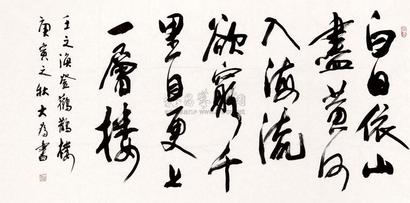 白日依山
盡黄河
入海流
欲窮千
里目更上
一層樓
王之渙登鸛鵲樓
庚寅之秋大为書